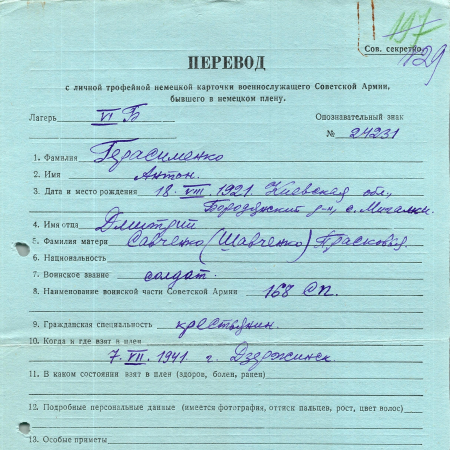 197
Сов. секретно
129
ПЕРЕВОД
с личной трофейной немецкой карточки военнослужащего Советской Армии,
бывшего в немецком плену.
Лагерь VI Б
Опознавательный знак
№ 24231
1. Фамилия Герасименко
2. Имя Антон.
3. Дата и место рождения 18. VIII 1921. Киевская обл.,
Бородянский р-н, с. Мигалки.
4. Имя отца Дмитрий
5. Фамилия матери Савченко (Шавченко) Прасковья.
6. Национальность
7. Воинское звание солдат.
8. Наименование воинской части Советской Армии 168 СП.
9. Гражданская специальность крестьянин.
10. Когда и где взят в плен
7. VII. 1941 г. Дзержинск
11. В каком состоянии взят в плен (здоров, болен, ранен)
12. Подробные персональные данные (имеется фотография, оттиск пальцев, рост, цвет волос)
13. Особые приметы